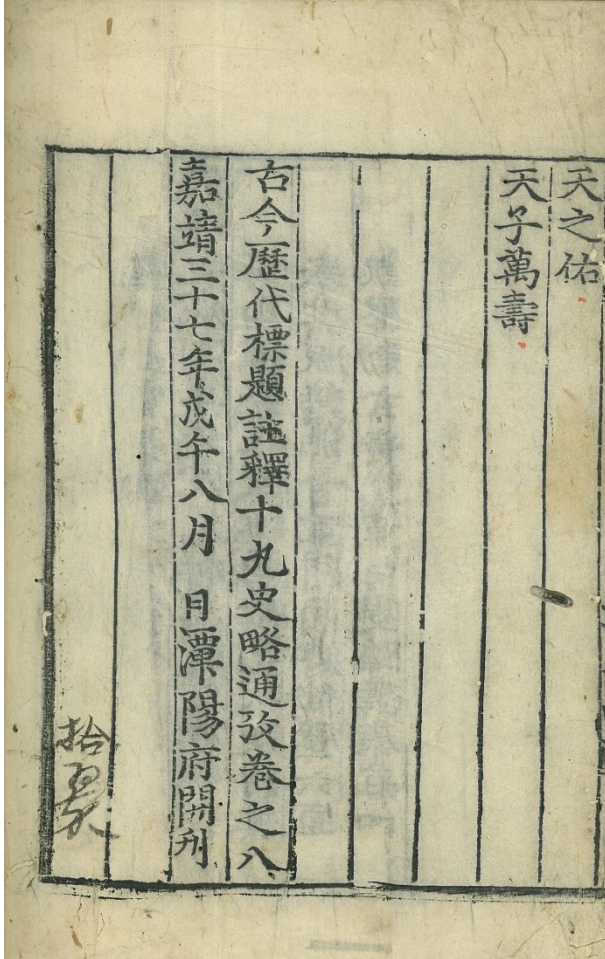 天之佑
天子萬壽
古今歷代標題註釋十九史略通攷卷之八
嘉靖三十七年戊午八月 日潭陽府開刊
拾